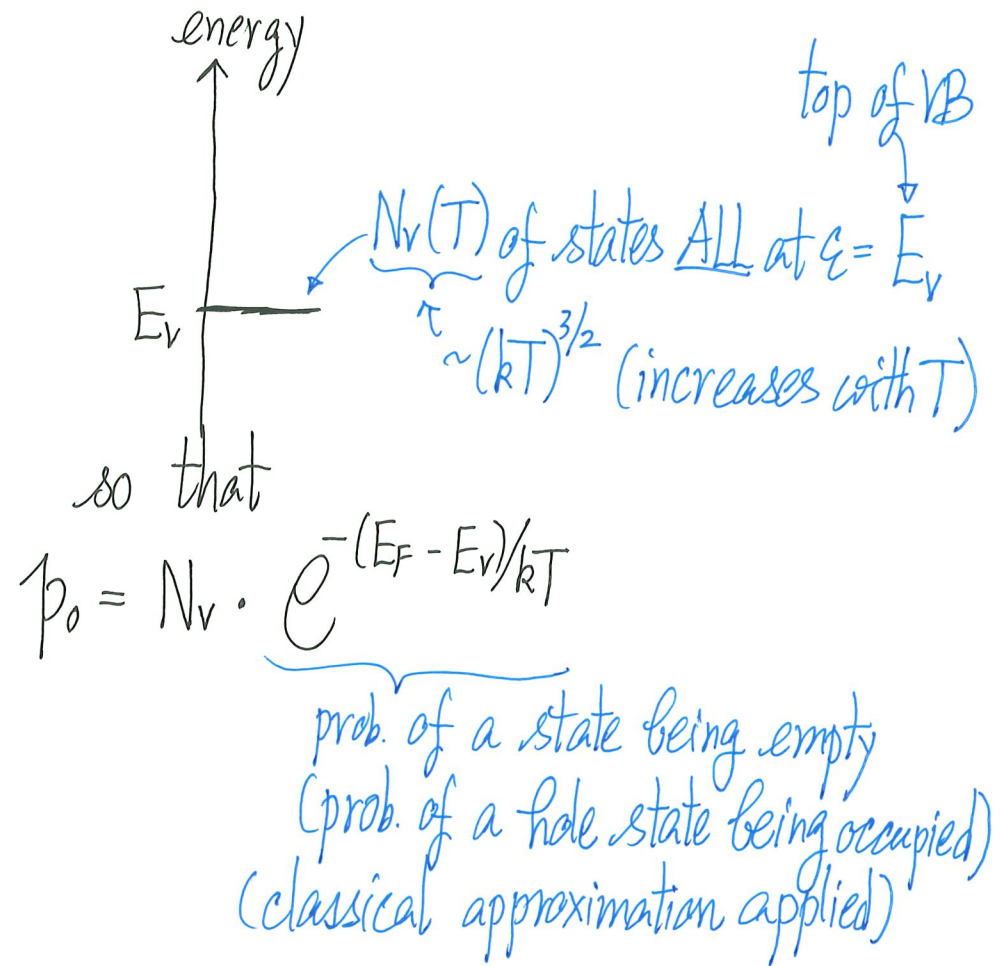 energy
top of VB
Nv(T) of states ALL at ε = Ev
Ev
~(kT)^3/2 (increases with T)
so that
p₀ = Nv · e^-(EF - Ev)/kT
prob. of a state being empty
(prob. of a hole state being occupied)
(classical approximation applied)